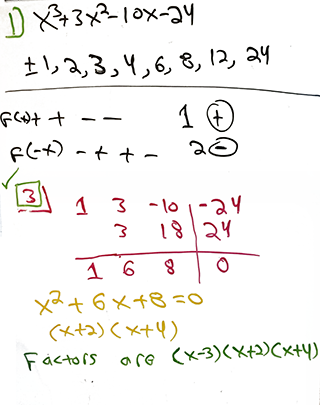 1) x³+3x²-10x-24
±1, 2, 3, 4, 6, 8, 12, 24
F(x) + + - - 1 +
F(-x) - + + - 2 -
✓
3 1 3 -10 -24
3 18 24
1 6 8 0
x²+6x+8=0
(x+2)(x+4)
Factors are (x-3)(x+2)(x+4)